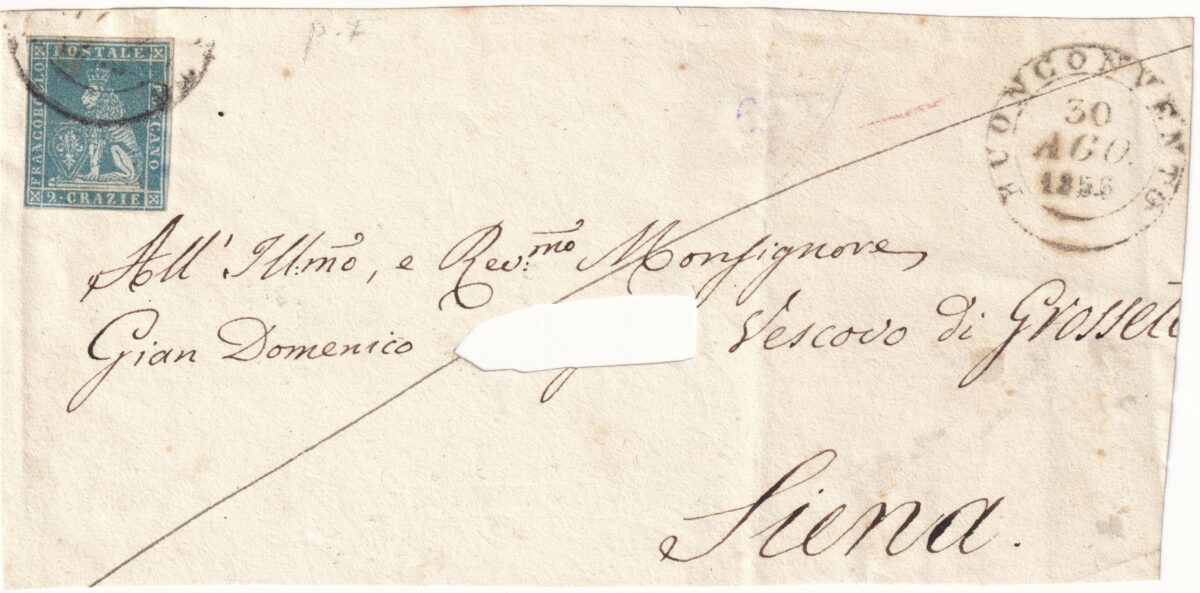 FRANCOBOLLO POSTALE TOSCANO
2 CRAZIE
p. 7
BUONCONVENTO
30
AGO.
185
All' Ill:mo, e Rev:mo Monsignore
Gian Domenico Vescovo di Grosseto
Siena.